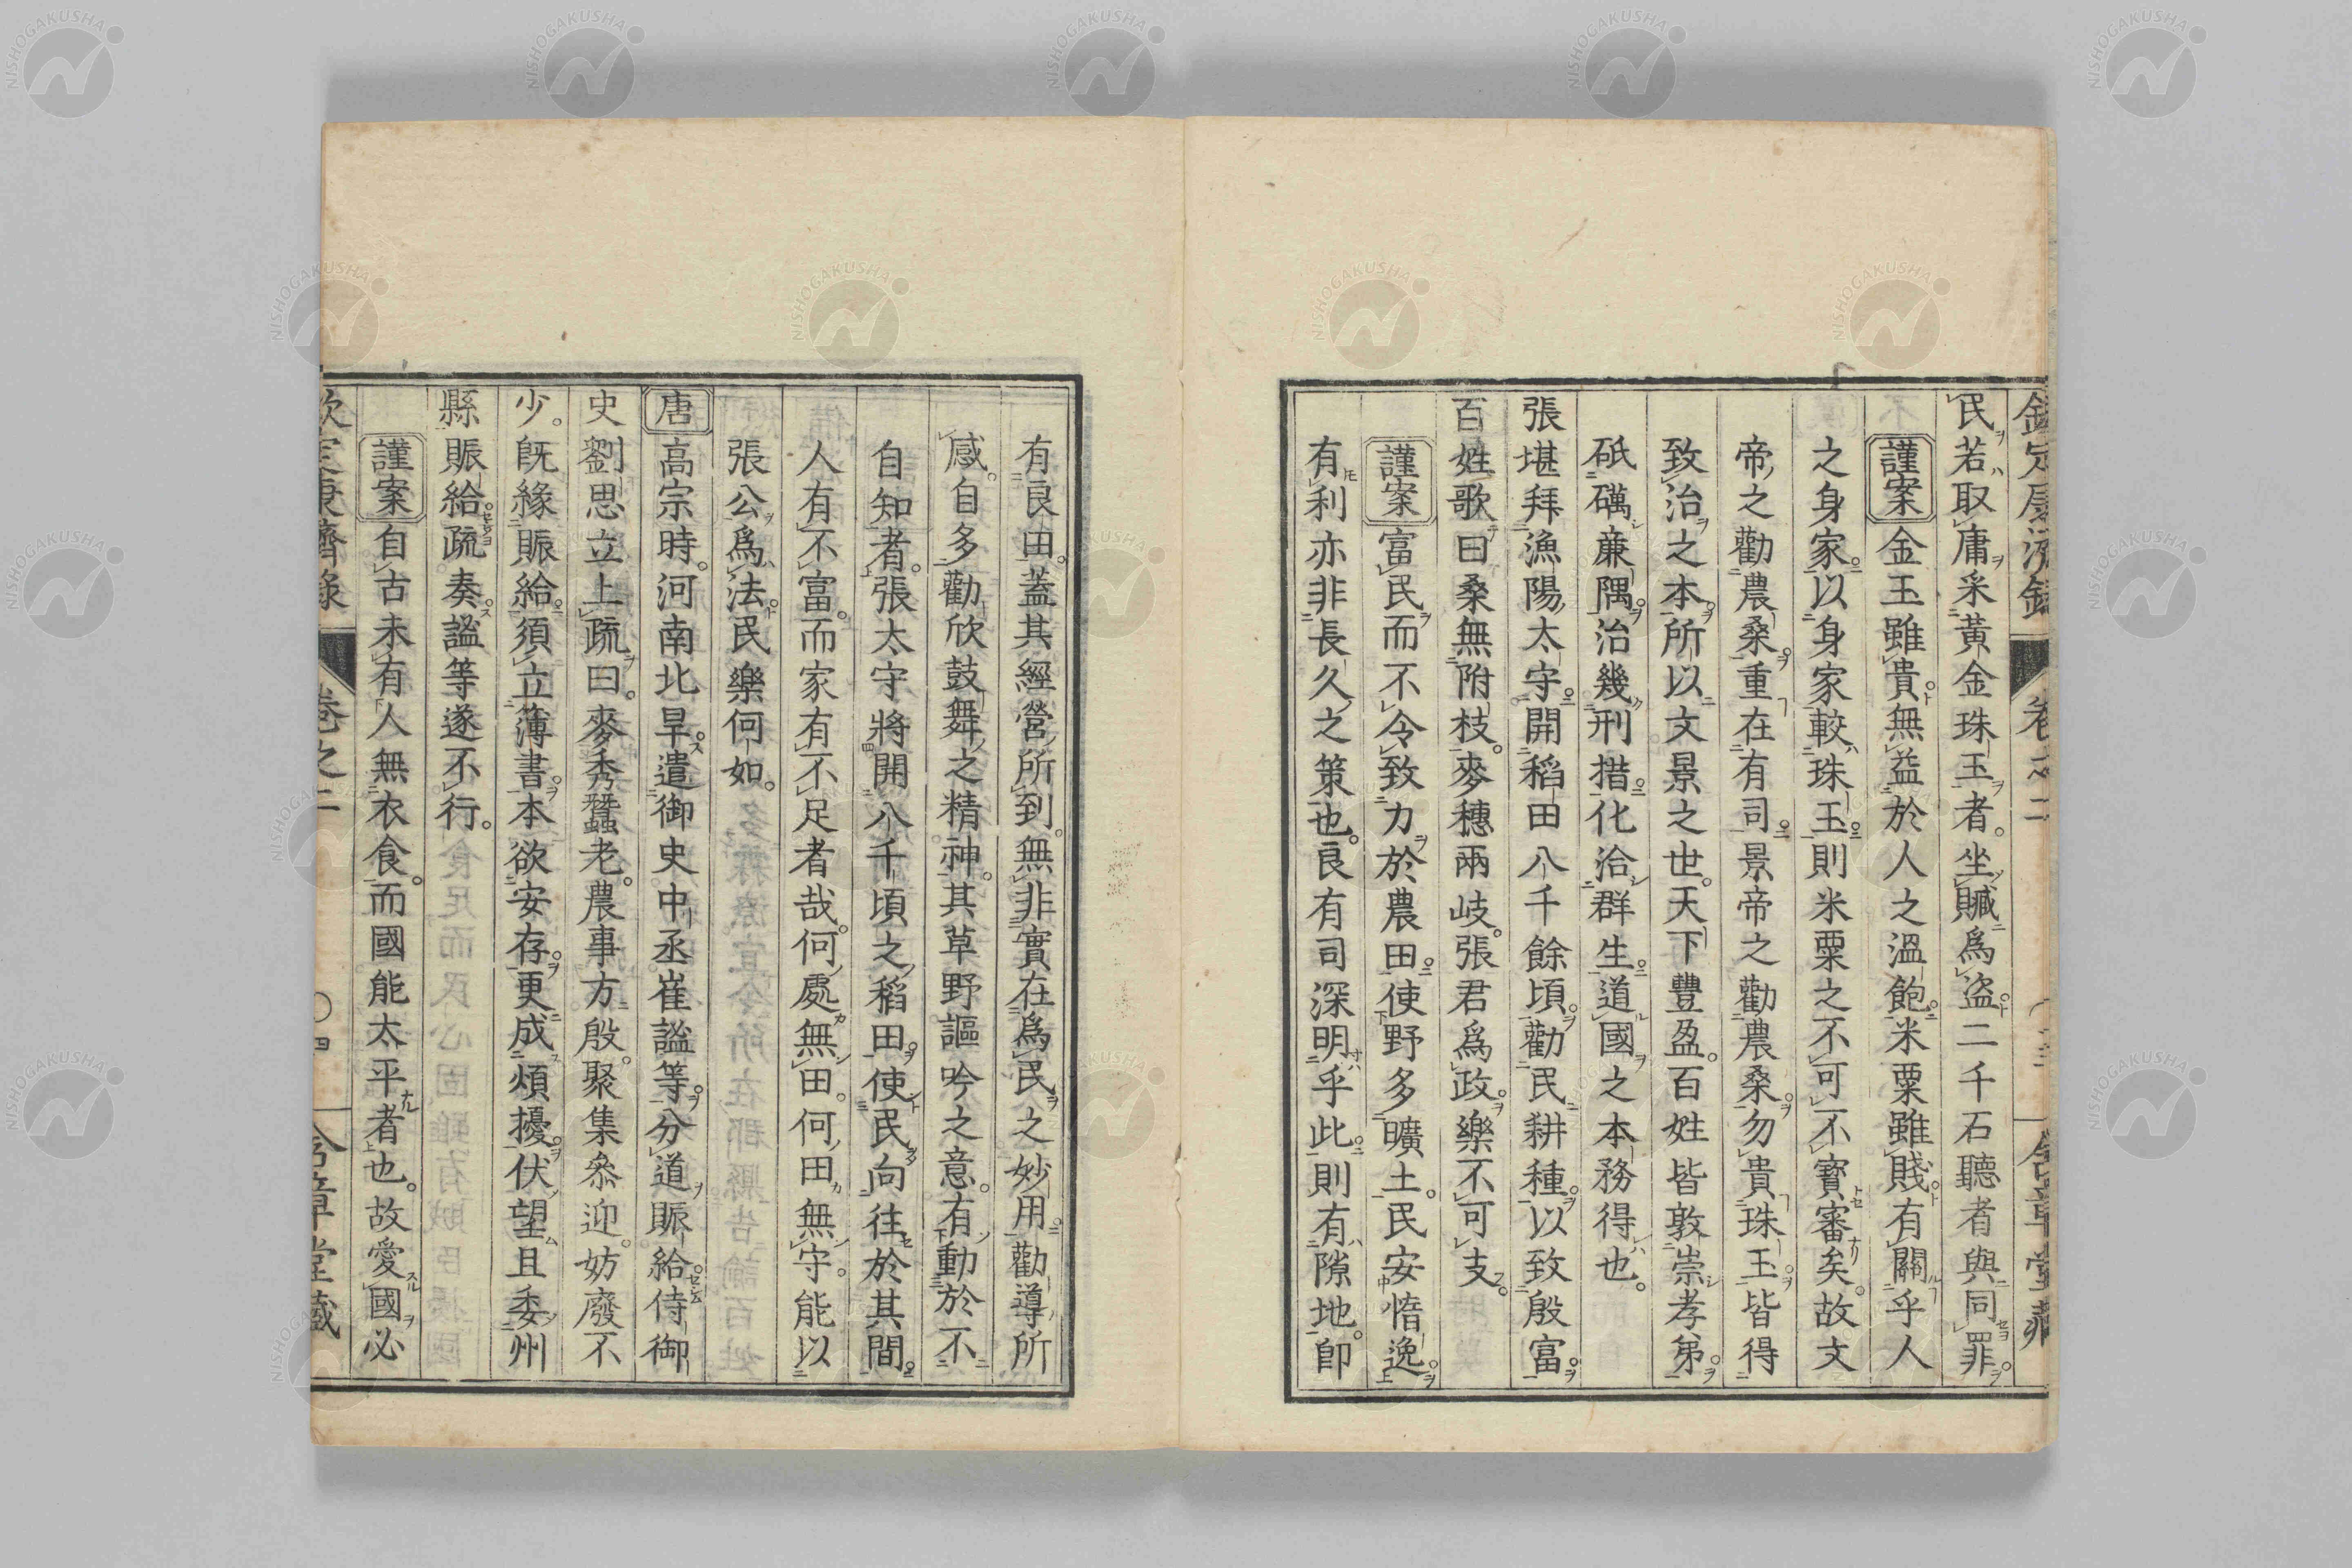 民若取庸采黃金珠玉者。坐贓爲盜二千石聽者與同罪。
謹案金玉雖貴無益於人之溫飽米粟雖賤有關乎人
之身家。以身家較珠玉則米粟之不可不寳審矣。故文
帝之勸農桑重在有司景帝之勸農桑勿貴珠玉皆得
致治之本所以文景之世。天下豐盈。百姓皆敦崇孝弟。
砥礪廉隅治幾刑措化洽群生道國之本務得也。
張堪拜漁陽太守開稻田八千餘頃勸民耕種以致殷富
百姓歌曰桑無附枝。麥穗兩岐。張君爲政樂不可支。
謹案富民而不令致力於農田使野多曠土。民安惰逸
有利亦非長久之策也。良有司深明乎此則有隙地。卽
有良田。蓋其經營所到。無非實在爲民之妙用勸導所
感。自多勸欣鼓舞之精神。其草野謳吟之意。有動於不
自知者。張太守將開八千頃之稻田使民向往於其間
人有不富。而家有不足者哉。何處無田。何田無守。能以
張公爲法民樂何如。
唐高宗時。河南北旱遣御史中丞崔謐等分道賑給侍御
史劉思立上疏曰。麥秀蠶老。農事方殷。聚集叅迎。妨廢不
少。旣緣賑給須立簿書本欲安存更成煩擾伏望且委州
縣賑給疏奏謐等遂不行。
謹案自古未有人無衣食。而國能太平者也。故愛國必
欽定康濟錄 卷之二 〇四